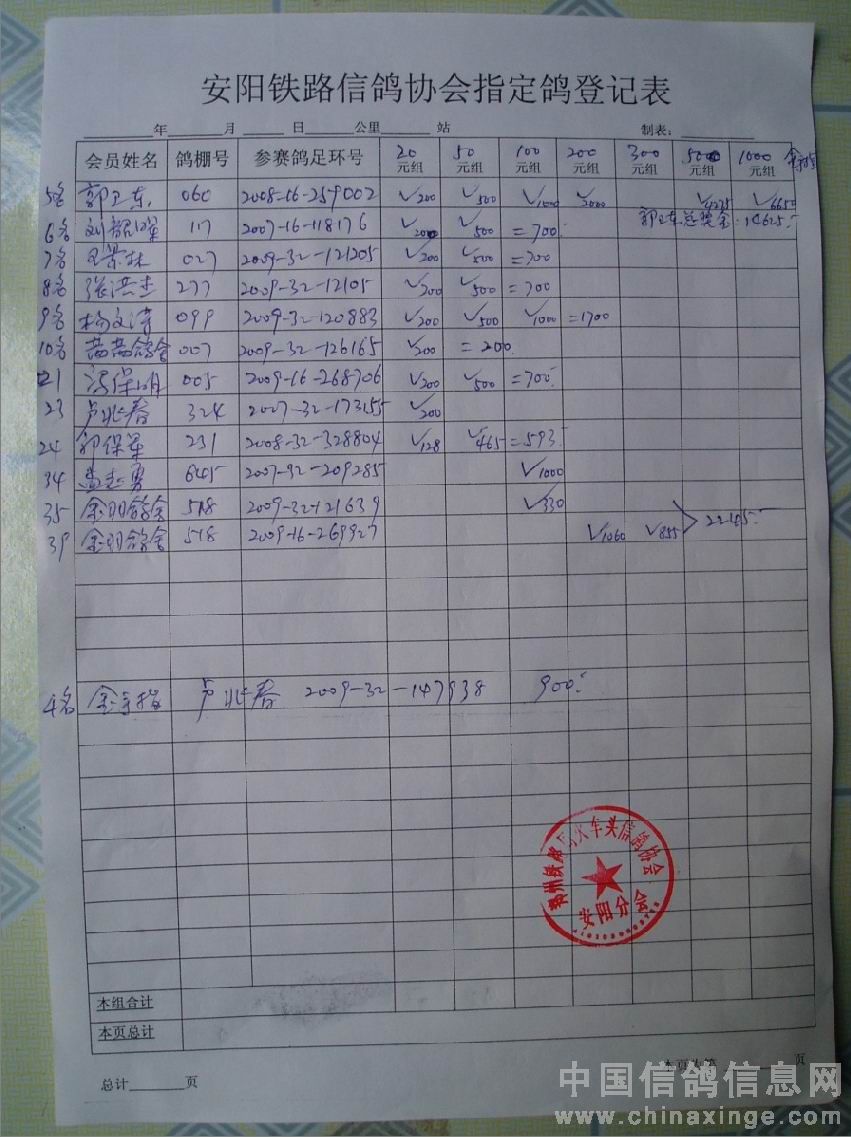 安阳铁路信鸽协会指定鸽登记表
年 月 日 公里 站 制表：
会员姓名 鸽棚号 参赛鸽足环号 20元组 50元组 100元组 200元组 300元组 500元组 1000元组
5名 郭卫东 060 2008-16-259002 √200 √500 √1000 √2000 √4275 √6650
6名 117 2007-16-118176 √200 √500 =700 郭卫东总奖金:14625
7名 027 2009-32-121205 √200 √500 =700
8名 张洪杰 277 2009-32-12105 √200 √500 =700
9名 杨文涛 099 2009-32-120883 √200 √500 √1000 =1700
10名 茜茜鸽舍 007 2009-32-126165 √200 =200
21 保明 005 2009-16-268706 √200 √500 =700
23 卢兆春 324 2007-32-173155 √200
24 郭保军 231 2008-32-328804 √128 √465 =593
34 孟赵勇 645 2007-32-209285 √1000
35 金羽鸽舍 518 2009-32-121639 √330
39 金羽鸽舍 518 2009-16-269927 √1060 √855 2245
4名 金手指 卢兆春 2009-32-147938 900
郑州铁路局火车头信鸽协会
安阳分会
本组合计
本页总计
总计 页 本页为第 页
中国信鸽信息网
www.chinaxinge.com